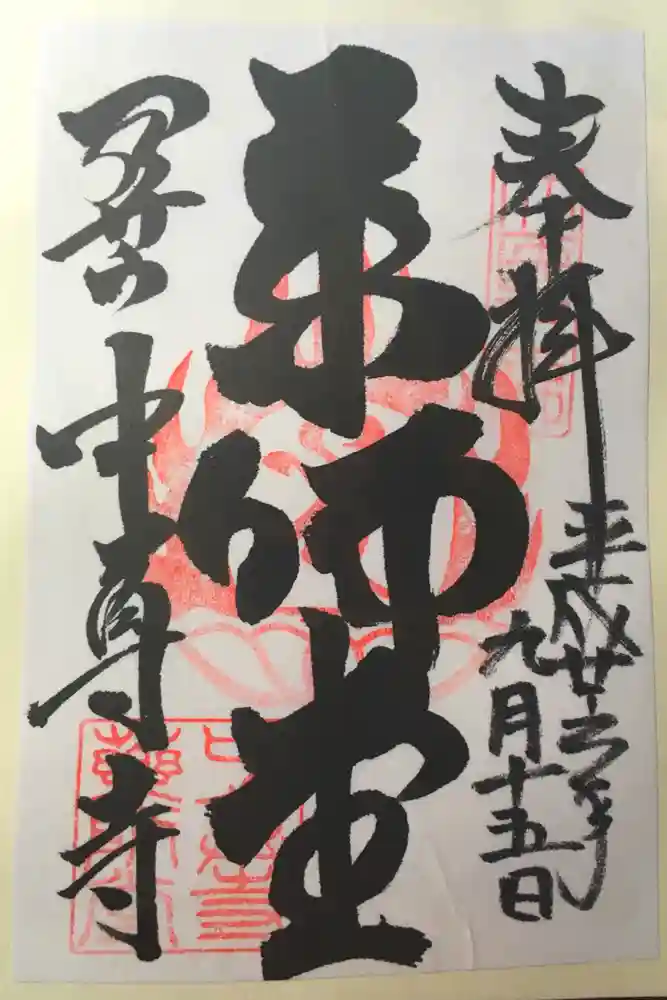 奉拝
平成廿六年
九月十五日
薬師堂
関山
中尊寺